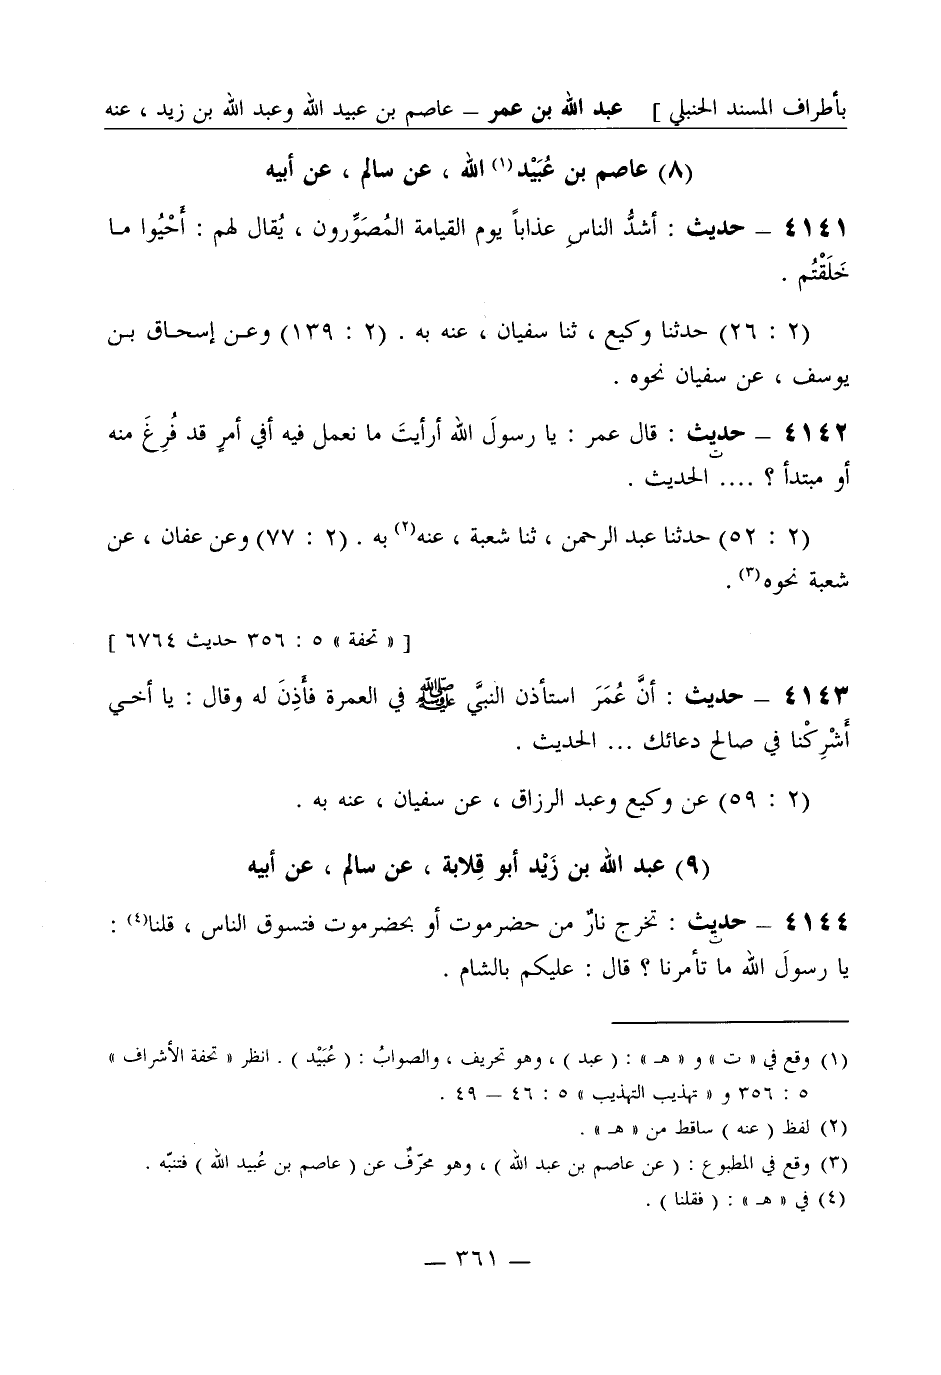 بأطراف المسند الحنبلي ] عبد الله بن عمر – عاصم بن عبيد الله وعبد الله بن زيد ، عنه
(٨) عاصم بن عُبَيْد(١) الله ، عن سالم ، عن أبيه
٤١٤١ – حديث : أشدُّ الناسِ عذاباً يوم القيامة المُصَوِّرون ، يُقال لهم : أَحْيُوا ما
خَلَقْتُم .
(٢ : ٢٦) حدثنا وكيع ، ثنا سفيان ، عنه به . (٢ : ١٣٩) وعن إسحاق بن
يوسف ، عن سفيان نحوه .
٤١٤٢ – حديث : قال عمر : يا رسولَ الله أرأيتَ ما نعمل فيه أفي أمرٍ قد فُرِغَ منه
ت
أو مبتدأ ؟ .... الحديث .
(٢ : ٥٢) حدثنا عبد الرحمن ، ثنا شعبة ، عنه(٢) به . (٢ : ٧٧) وعن عفان ، عن
شعبة نحوه(٣) .
[ « تحفة » ٥ : ٣٥٦ حديث ٦٧٦٤ ]
٤١٤٣ – حديث : أنَّ عُمَرَ استأذن النبيَّ ﷺ في العمرة فأَذِنَ له وقال : يا أخي
أَشْرِكْنا في صالح دعائك ... الحديث .
(٢ : ٥٩) عن وكيع وعبد الرزاق ، عن سفيان ، عنه به .
(٩) عبد الله بن زَيْد أبو قِلابة ، عن سالم ، عن أبيه
٤١٤٤ – حديث : تخرج نارٌ من حضرموت أو بحضرموت فتسوق الناس ، قلنا(٤) :
ت
يا رسولَ الله ما تأمرنا ؟ قال : عليكم بالشام .
(١) وقع في « ت » و « هـ » : ( عبد ) ، وهو تحريف ، والصوابُ : ( عُبَيْد ) . انظر « تحفة الأشراف »
٥ : ٣٥٦ و « تهذيب التهذيب » ٥ : ٤٦ – ٤٩ .
(٢) لفظ ( عنه ) ساقط من « هـ » .
(٣) وقع في المطبوع : ( عن عاصم بن عبد الله ) ، وهو محرّفٌ عن ( عاصم بن عُبيد الله ) فتنبّه .
(٤) في « هـ » : ( فقلنا ) .
– ٣٦١ –